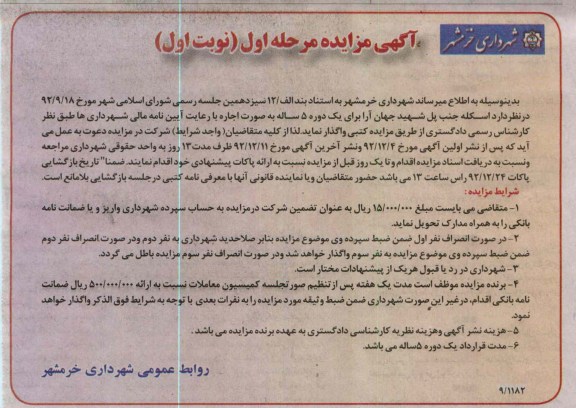 شهرداری خرمشهر
آگهی مزایده مرحله اول (نوبت اول)
بدینوسیله به اطلاع میرساند شهرداری خرمشهر به استناد بند الف/۱۲ سیزدهمین جلسه رسمی شورای اسلامی شهر مورخ ۹۲/۹/۱۸
در نظر دارد اسکله جنب پل شهید جهان آرا برای یک دوره ۵ ساله به صورت اجاره با رعایت آیین نامه مالی شهرداری ها طبق نظر
کارشناس رسمی دادگستری از طریق مزایده کتبی واگذار نماید. لذا از کلیه متقاضیان( واجد شرایط) شرکت در مزایده دعوت به عمل می
آید که پس از نشر اولین آگهی مورخ ۹۲/۱۲/۴ ونشر آخرین آگهی مورخ ۹۲/۱۲/۱۱ ظرف مدت۱۳ روز به واحد حقوقی شهرداری مراجعه
ونسبت به دریافت اسناد مزایده اقدام و تا یک روز قبل از مزایده نسبت به ارائه پاکات پیشنهادی خود اقدام نمایند. ضمنا" تاریخ بازگشایی
پاکات ۹۲/۱۲/۲۴ راس ساعت ۱۳ می باشد حضور متقاضیان ویا نماینده قانونی آنها با معرفی نامه کتبی در جلسه بازگشایی بلامانع است.
شرایط مزایده :
۱- متقاضی می بایست مبلغ ۱۵/۰۰۰/۰۰۰ ریال به عنوان تضمین شرکت درمزایده به حساب سپرده شهرداری واریز و یا ضمانت نامه
بانکی را به همراه مدارک تحویل نماید.
۲- در صورت انصراف نفر اول ضمن ضبط سپرده وی موضوع مزایده بنابر صلاحدید شهرداری به نفر دوم ودر صورت انصراف نفر دوم
ضمن ضبط سپرده وی موضوع مزایده به نفر سوم واگذار خواهد شد ودر صورت انصراف نفر سوم مزایده باطل می گردد.
۳- شهرداری در رد یا قبول هریک از پیشنهادات مختار است.
۴- برنده مزایده موظف است مدت یک هفته پس از تنظیم صورتجلسه کمیسیون معاملات نسبت به ارائه ۵۰۰/۰۰۰/۰۰۰ ریال ضمانت
نامه بانکی اقدام، درغیر این صورت شهرداری ضمن ضبط وثیقه مورد مزایده را به نفرات بعدی با توجه به شرایط فوق الذکر واگذار خواهد
نمود.
۵- هزینه نشر آگهی وهزینه نظریه کارشناسی دادگستری به عهده برنده مزایده می باشد.
۶- مدت قرارداد یک دوره ۵ساله می باشد.
روابط عمومی شهرداری خرمشهر
۹/۱۱۸۲